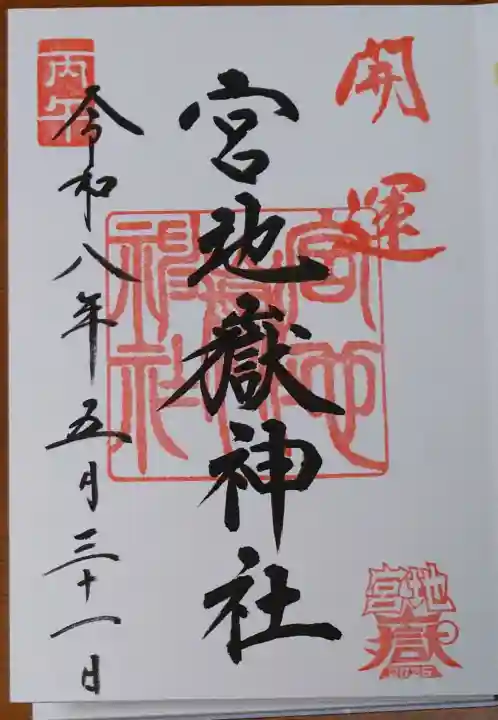 開運
宮地嶽神社
宮地嶽神社
宮地嶽
丙午
令和八年五月三十一日